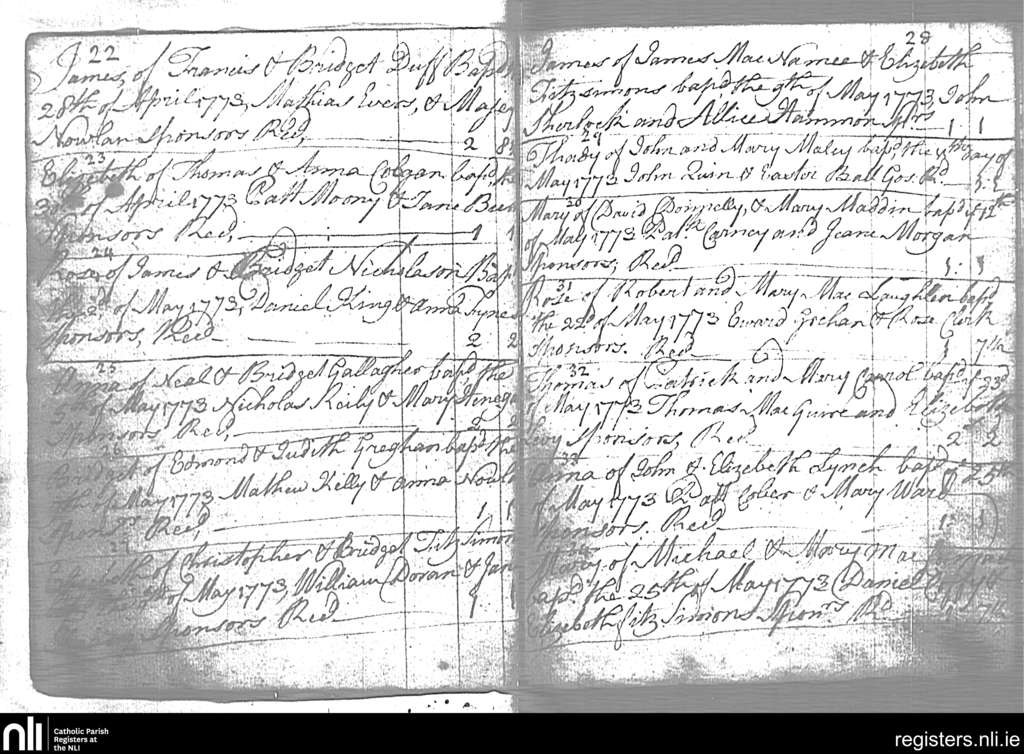 22
James, of Francis & Bridget Duff Bapd
28th of April 1773, Mathias Evers, &
Nowlan Sponsors Recd, 2
23
Elizabeth of Thomas & Anna bapd,
of April 1773 Patt Moony & Jane
Sponsors Recd, 1 1
24
Rose of James & Bridget Nicholason Bap
2d of May 1773, Daniel King & anna
Sponsors, Recd 2 2
25
Anna of Neal & Bridget Gallagher bapd the
5th of May 1773 Nicholas Reily & Mary
Sponsors, Recd, 2 2
26
Bridget of Edmond & Judith Greghan bapd the
of May 1773 Mathew Kelly & anna
Sponrs Recd, 1 1
Elizabeth of Christopher & Bridget Fitz Simon
of May 1773, William Doran & Jan
Sponsors Recd 1
28
James of James Mac Namee & Elizabeth
Fitzsimons bapd, the 9th of May 1773, John
Sherlock and Allice Hammon Spnrs 1 1
29
Thady of John and Mary Maley bapd, the day of
May 1773 John Quin & Easter Ball Gos. Rd
30
Mary of David Donnelly, & Mary Maddin bapd ye 12th
of May 1773 Patk Carney and Jeane Morgan
Sponsors, Recd 1 : 1
31
Rose of Robert and Mary Mac Laughlen bapd
the 22d of May 1773 Eward Grehan & Rose Clerk
Sponsors. Recd 1 7½
32
Thomas of Patrick and Mary Carrol bapd ye 23d
of May 1773 Thomas Mac Guire and Elizabeth
Levy Sponsors, Recd 2 2
33
Anna of John & Elizebeth Lynch bapd ye 25th
of May 1773 Patt & Mary Ward
Sponsors. Recd 1 1
34
of Michael & Mac
bapd the 25th of May 1773 Daniel
Elizebeth fitz Simons Sponrs Rd
nli
Catholic Parish
Registers at
the NLI
registers.nli.ie